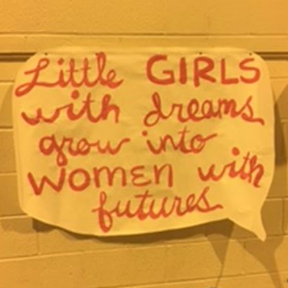 Little GIRLS
with dreams
grow into
WOMEN with
futures